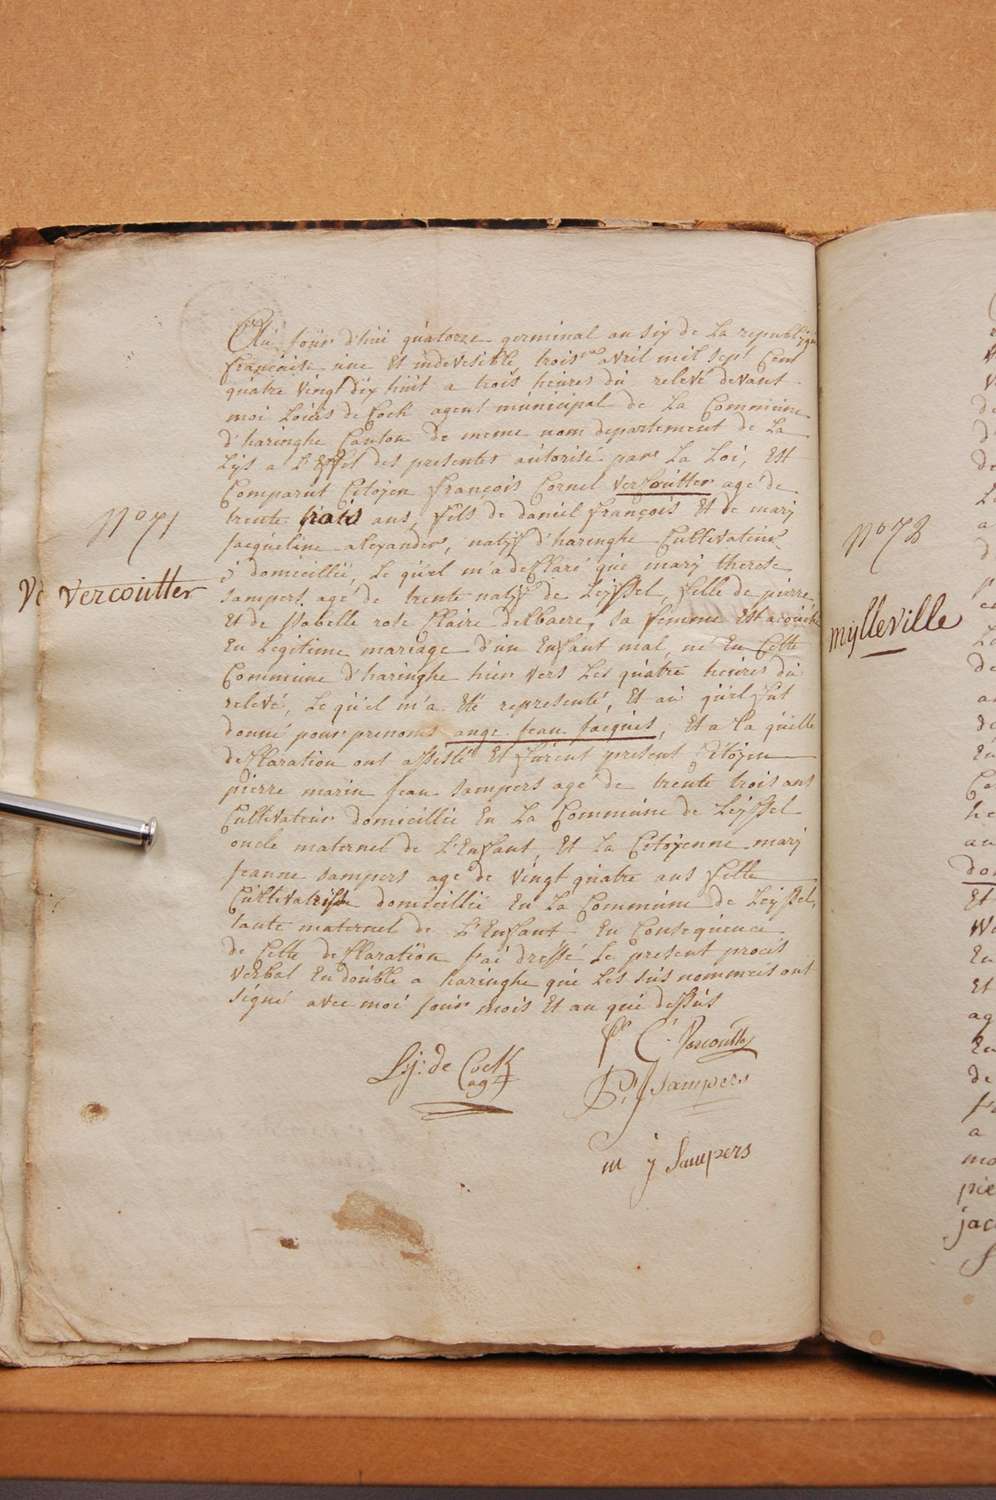 Au jour d'hui quatorze germinal an six de La republique
francaise une Et indevesible trois me avril mil sept Cent
quatre vingt dix huit a trois heures du relevé devant
moi Louis de Cock agent municipal de La Commune
d'haringhe Canton de meme nom departement de La
Lys a L'Effet des presentes autorisé par La Loi, Est
Comparut Citoÿen françois Cornel vercoutter agé de
trente trois ans, fils de daniel françois Et de marÿ
jacqueline alexander, natif d'haringhe Cultivateur
ÿ domicillié, Le quel m'a declaré que marÿ therese
sampers agé de trente natif de Leÿssel, fille de pierre
Et de Isabelle rose Claire delbaere, sa femme Est acouchée
En Legitime mariage d'un Enfant mal, né En Cette
Commune d'haringhe hier vers Les quatre heures du
relevé, Le quel m'a Eté representé, Et au quel fut
donné pour prenoms ange jean jacques, Et a La quelle
declaration ont assisté Et furent present Citoÿen
pierre marin jean sampers agé de trente trois ans
Cultivateur domicillié En La Commune de Leÿssel
oncle maternel de L'Enfant, Et La Citoÿenne marÿ
jeanne sampers agé de vingt quatre ans fille
Cultivatrise domicillié En La Commune de Leÿssel,
tante maternel de L'Enfant En Consequence
de Cette declaration j'ai dressé Le present procès
verbal En double a haringhe que Les sus nommés ont
signé avec moi jour mois Et an que dessus
N° 71
Vercoutter
fs C. Vercoutter
Lÿ: de Cock
agt
P. J Sampers
m j Sampers
N° 72
mÿlleville